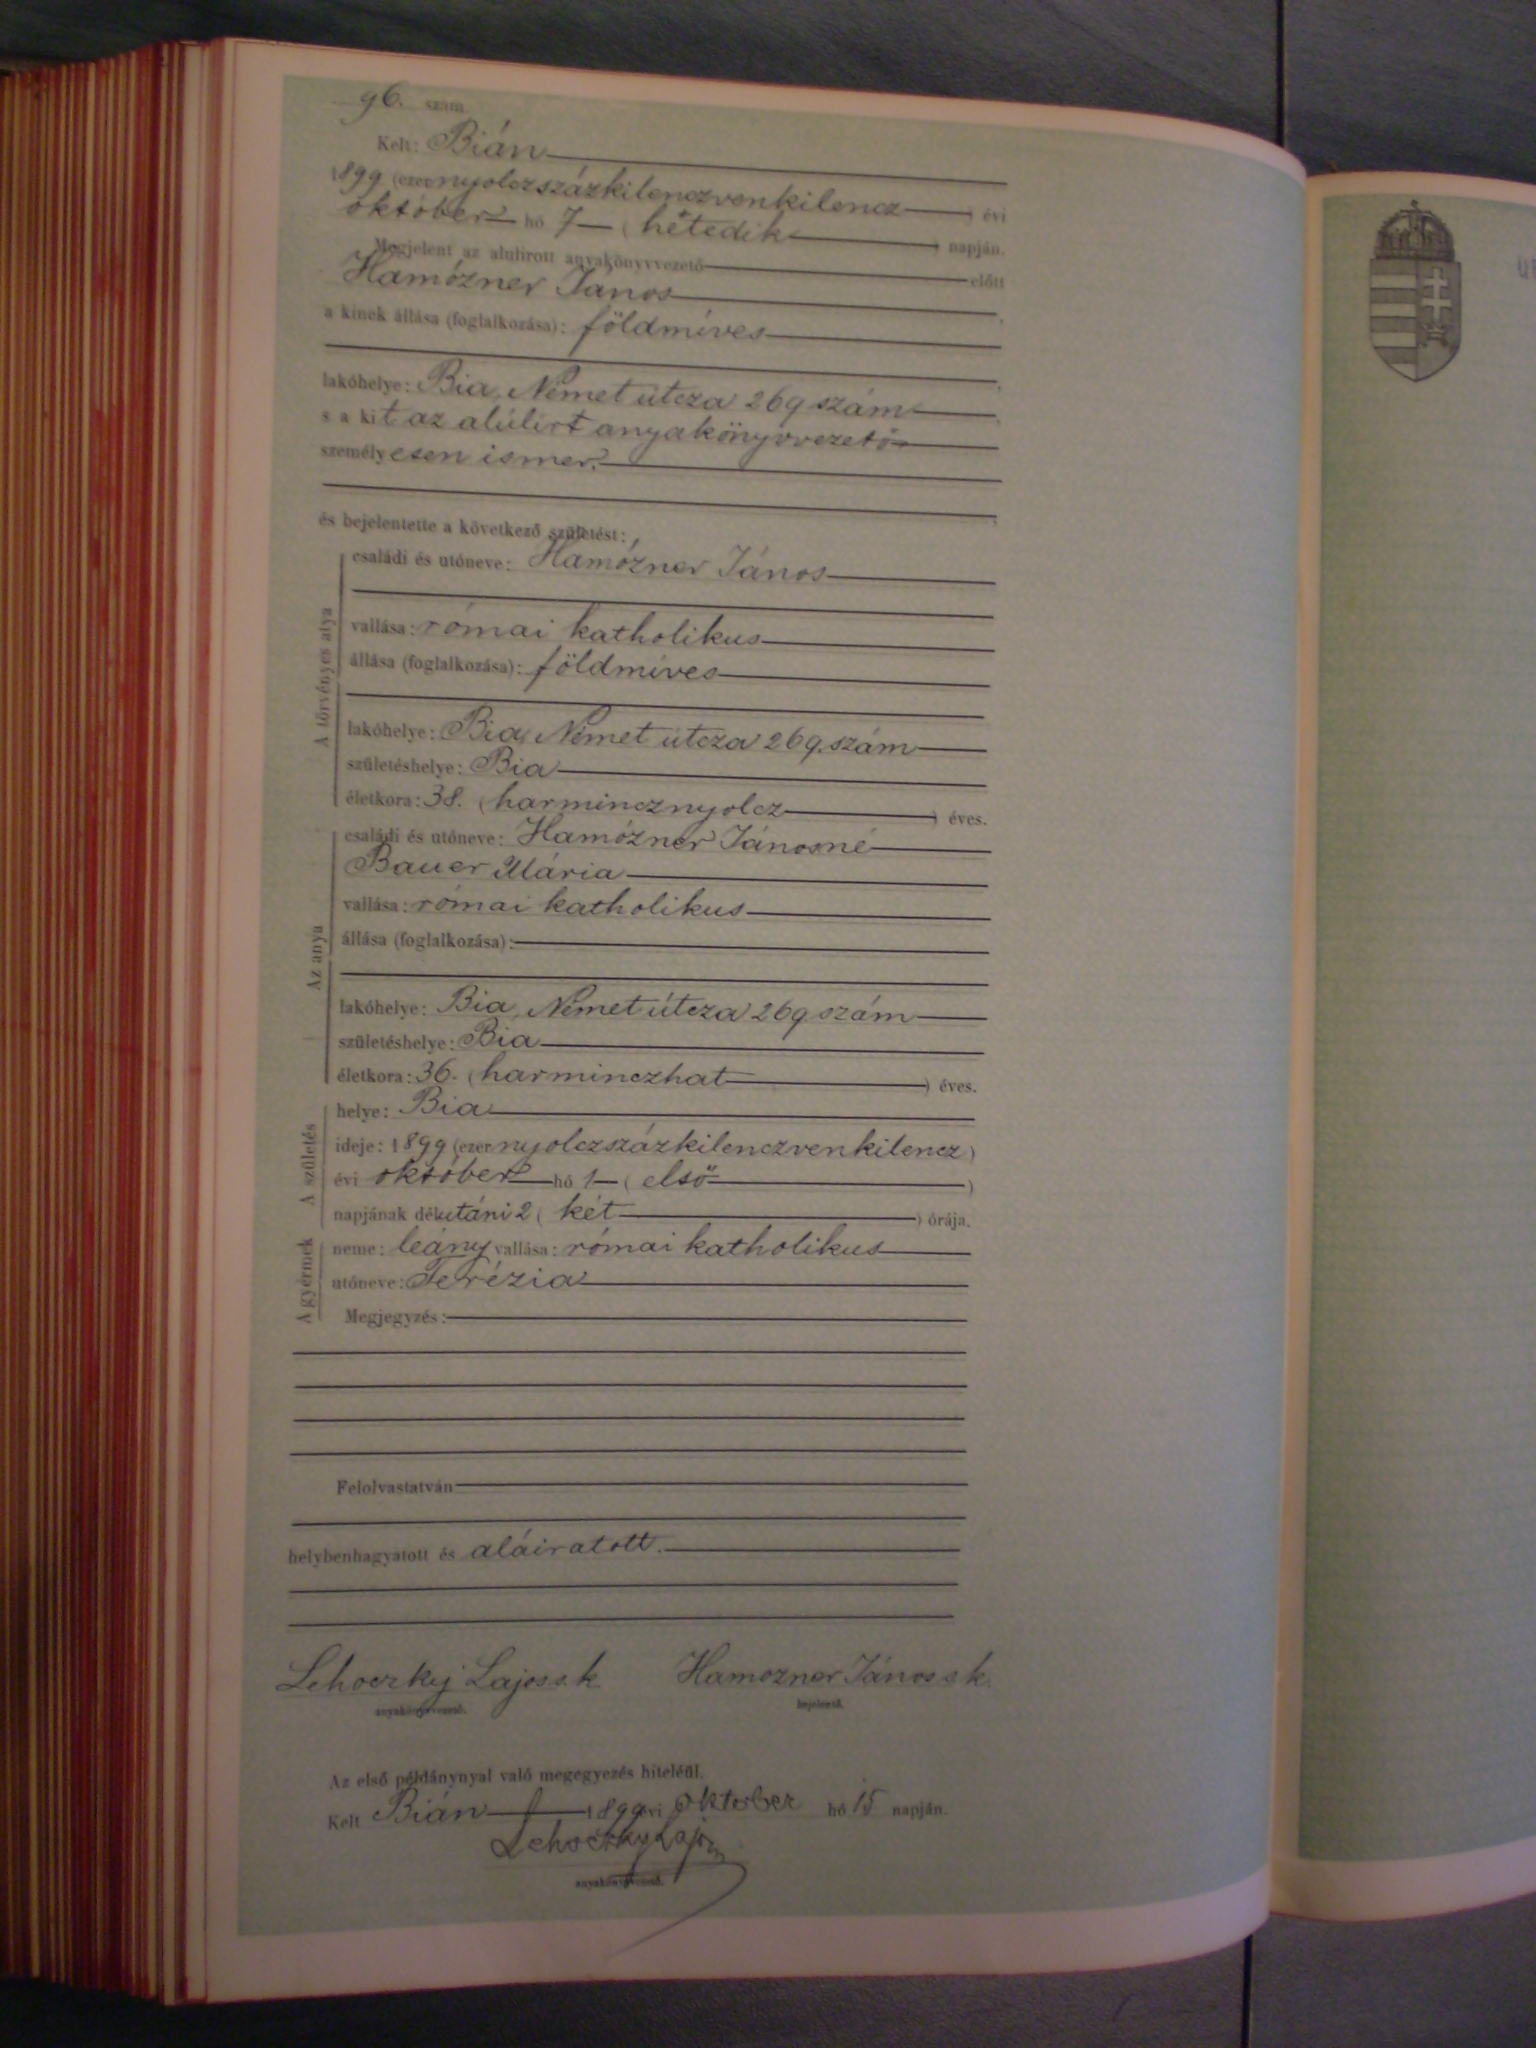 96. szám
Kelt: Bián
1899 (ezer nyolczszázkilenczvenkilencz) évi
október hó 7 (hetedik) napján.
Megjelent az alulirott anyakönyvvezető előtt
Hamózner János,
a kinek állása (foglalkozása): földmíves
lakóhelye: Bia, Német útcza 269 szám,
s a kit az alúlirt anyakönyvvezető
személyesen ismer,
és bejelentette a következő születést:
A törvényes atya
családi és utóneve: Hamózner János
vallása: római katholikus
állása (foglalkozása): földmíves
lakóhelye: Bia, Német útcza 269. szám
születéshelye: Bia
életkora: 38. (harmincznyolcz) éves.
Az anya
családi és utóneve: Hamózner Jánosné
Bauer Mária
vallása: római katholikus
állása (foglalkozása):
lakóhelye: Bia, Német útcza 269 szám
születéshelye: Bia
életkora: 36. (harminczhat) éves.
A születés
helye: Bia
ideje: 1899 (ezer nyolczszázkilenczvenkilencz)
évi október hó 1 (első)
napjának délutáni 2 (két) órája.
A gyermek
neme: leány vallása: római katholikus
utóneve: Terézia
Megjegyzés:
Felolvastatván
helybenhagyatott és aláiratott.
Lehoczky Lajos s.k. Hamozner János s k.
anyakönyvvezető. bejelentő.
Az első példánynyal való megegyezés hiteléül.
Kelt Bián 1899 évi oktober hó 15 napján.
Lehoczky Lajos
anyakönyvvezető.